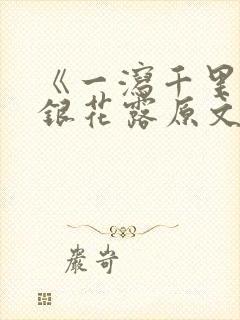 《一瀉千里
銀花露原文
嚴岢